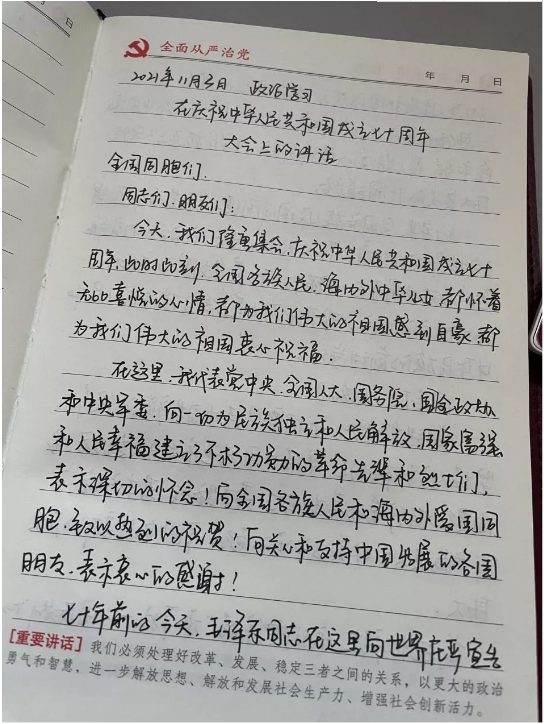 月 日
全面从严治党
年 月 日
2021年11月3日 政治学习
在庆祝中华人民共和国成立七十周年
大会上的讲话
全国同胞们.
同志们.朋友们:
今天.我们隆重集会.庆祝中华人民共和国成立七十
周年.此时此刻.全国各族人民.海内外中华儿女 都怀着
无比喜悦的心情,都为我们伟大的祖国感到自豪 都
为我们伟大的祖国衷心祝福.
在这里.我代表党中央.全国人大.国务院.国全政协
和中央军委.向一切为民族独立和人民解放,国家富强
和人民幸福建立了不朽功勋的革命先辈和烈士们,
表示深切的怀念!向全国各族人民和海内外爱国同
胞.致以热烈的祝贺!向关心和支持中国发展的各国
朋友.表示衷心的感谢!
七十年前的今天.毛泽东同志在这里向世界庄严宣告
[重要讲话] 我们必须处理好改革、发展、稳定三者之间的关系,以更大的政治
勇气和智慧,进一步解放思想、解放和发展社会生产力、增强社会创新活力。